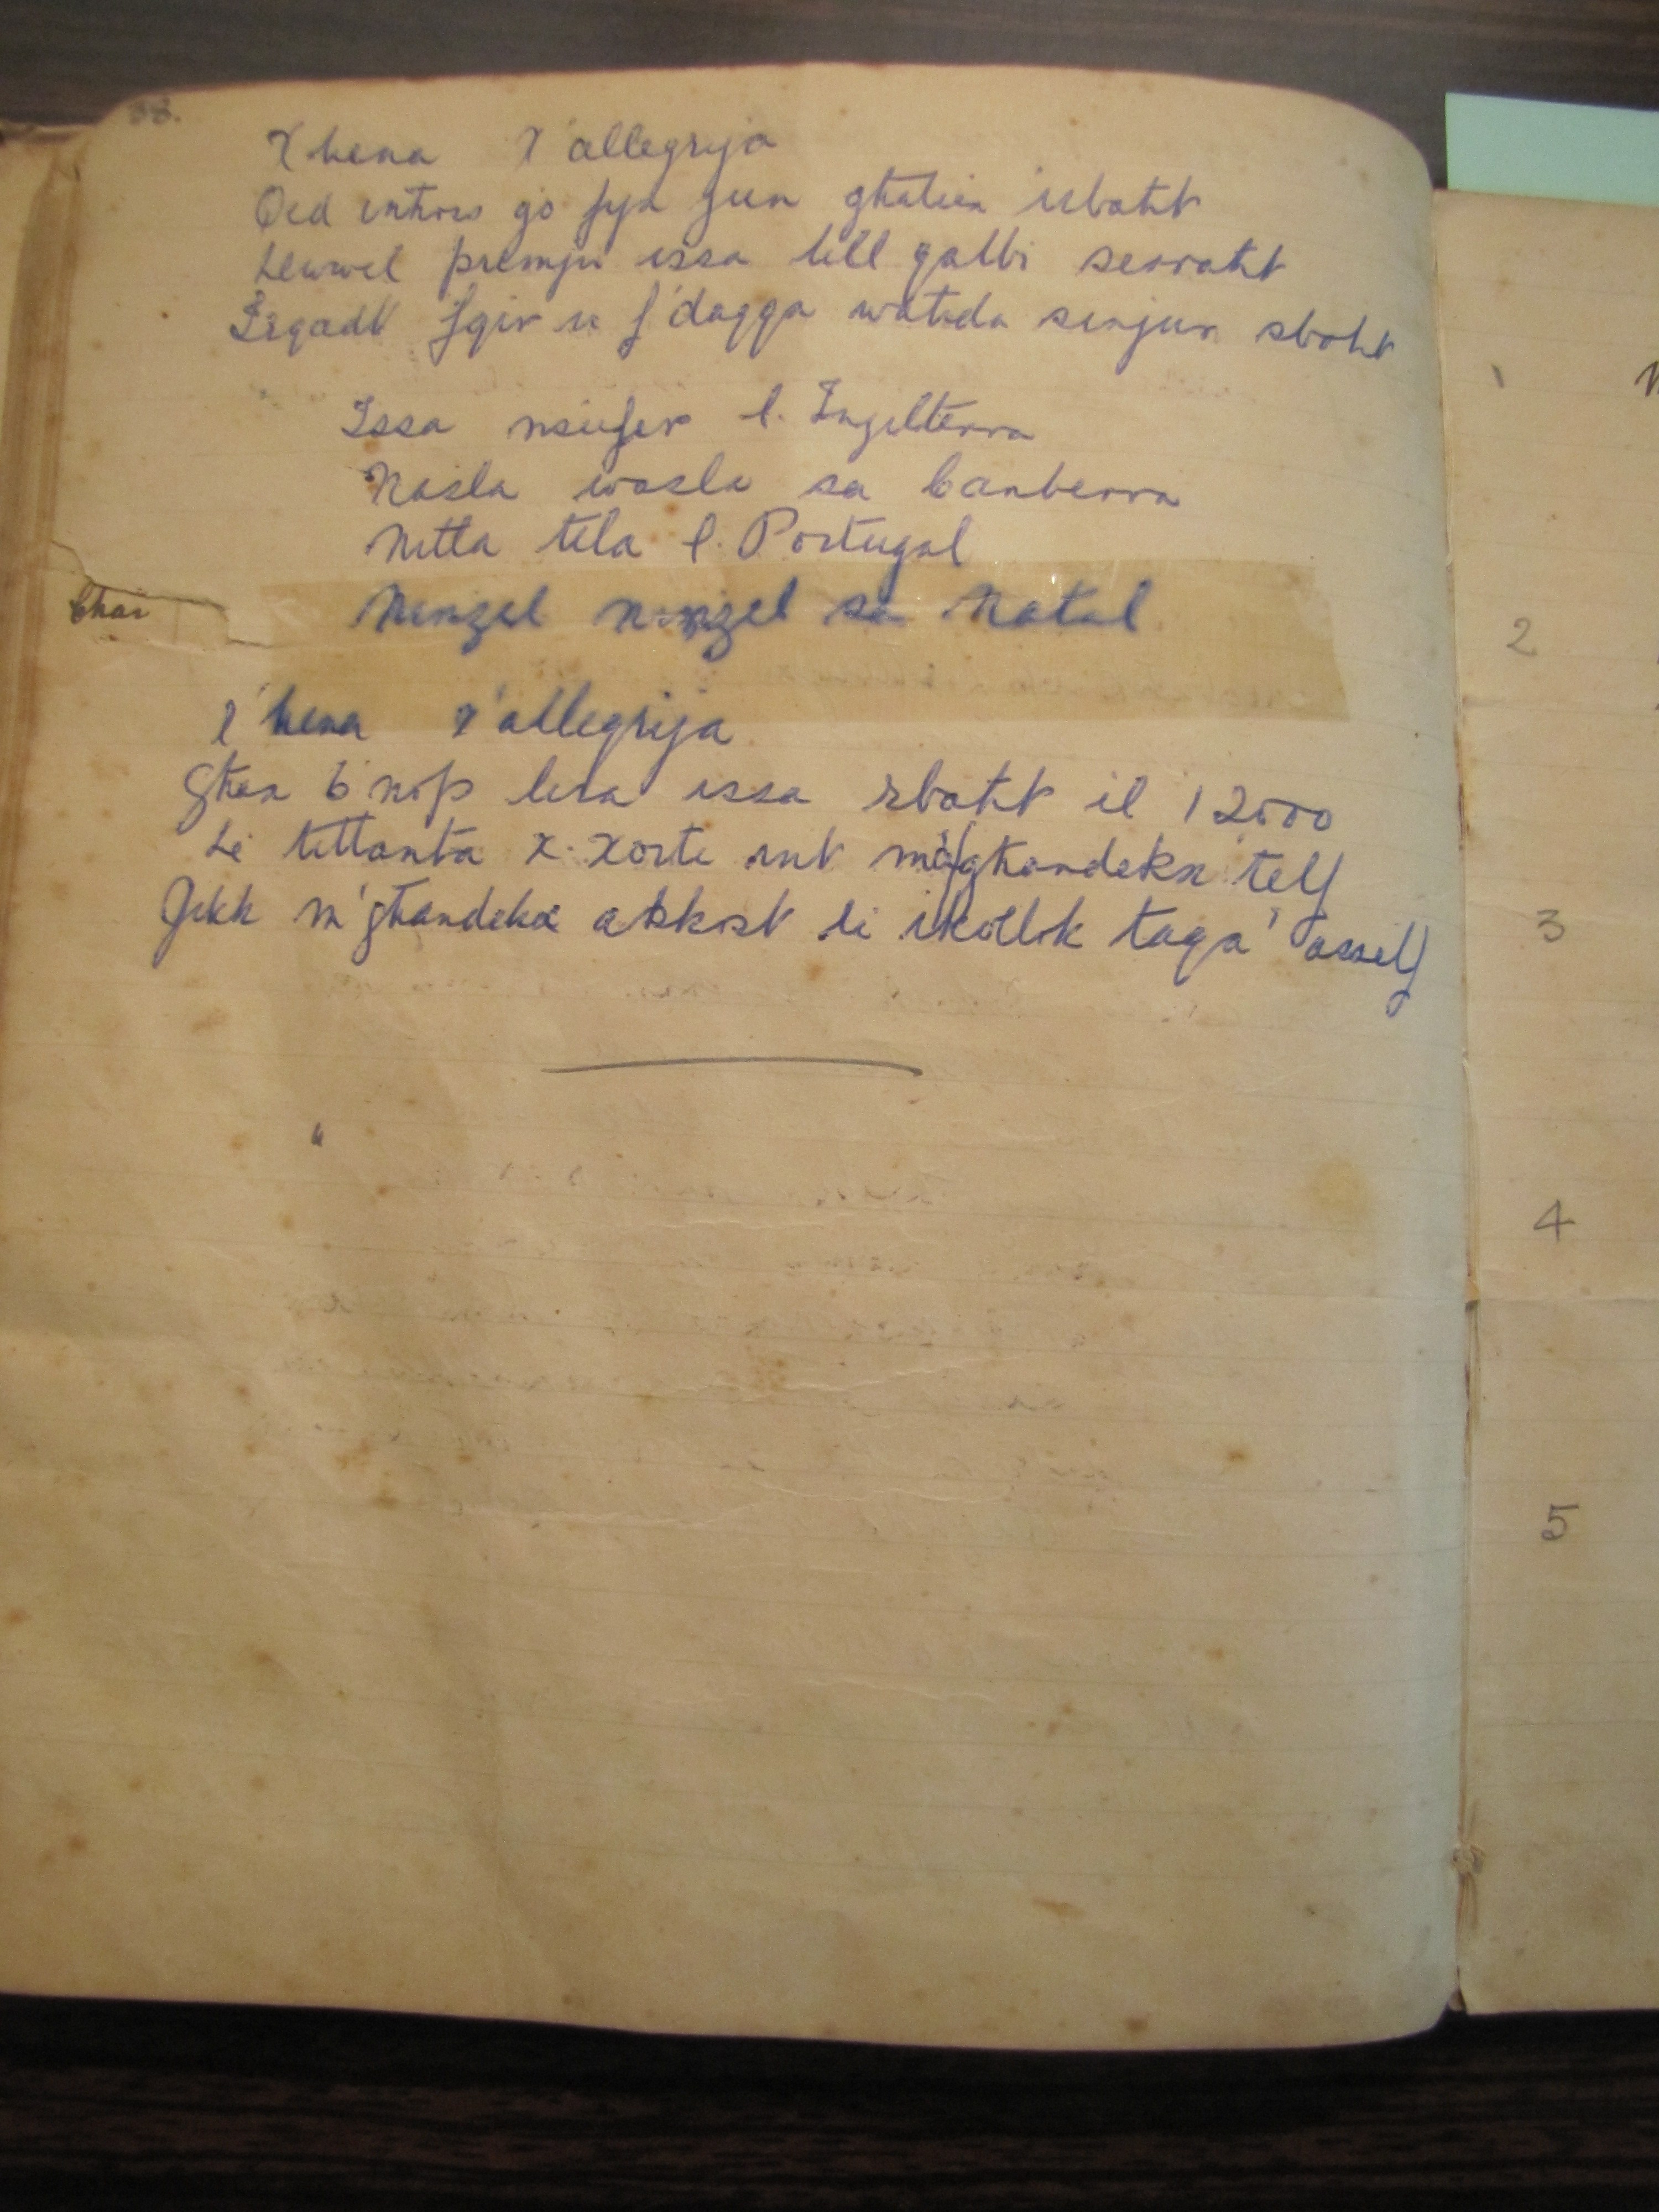 88.
X hena X'allegrija
Qed intnos go fija fun ghalien irbaht
Lewwel premju issa lill qalbi serraht
Irqadt fqir u f'daqqa wahda sinjur sbaht
Issa nsiefer l. Ingilterra
Nasla wasla sa Canberra
Nitta tila l. Portugal
Ninzel ninzel sa Natal
X'hena X'allegrija
Ghan 6 nofs lira issa rbaht il 12000
Li tittanta x-xorti int m'ghandekx telf
Jekk m'ghandekx akkost li ikollok taqa' asself
2
3
4
5